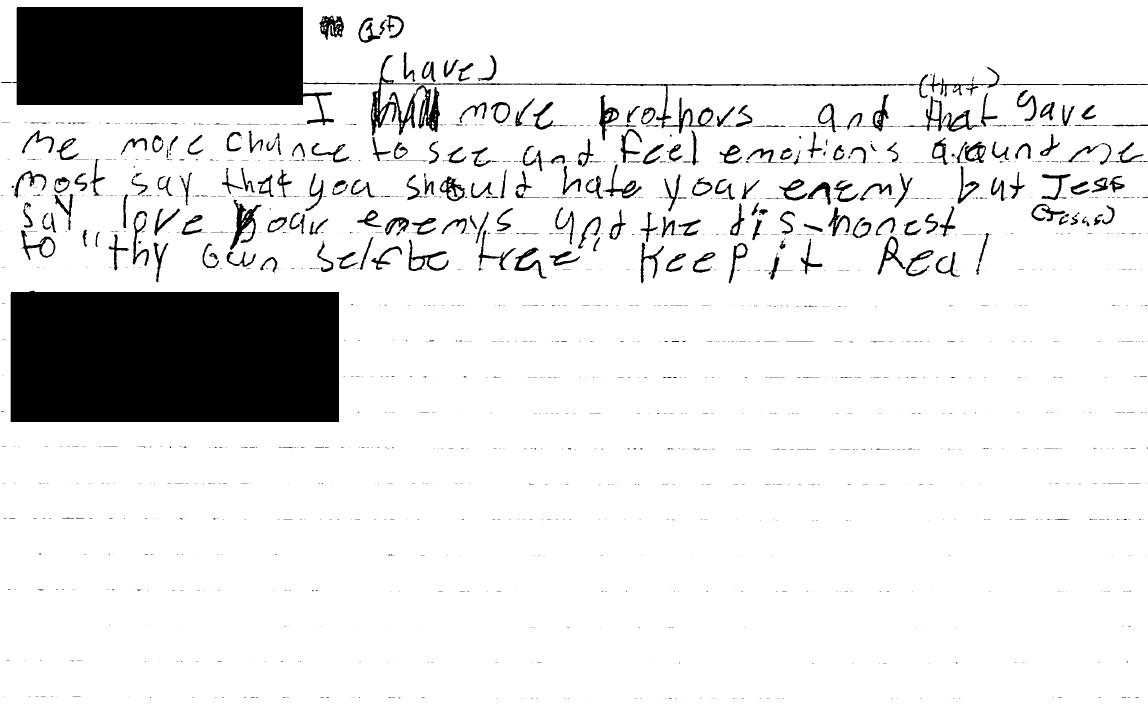 (1st)
(have)
(that)
I more brothors and that gave
me more chance to see and feel emoition's around me
most say that you should hate your enemy but Jess
say love your enemys and the dis-honest
(Jesus)
to "thy own self be true" Keep it Real